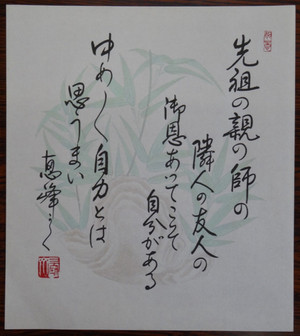 先祖の親の師の
隣人の友人の
御恩あってこそ
自分がある
ゆめゆめ自力とは
思うまい
恵峰かく